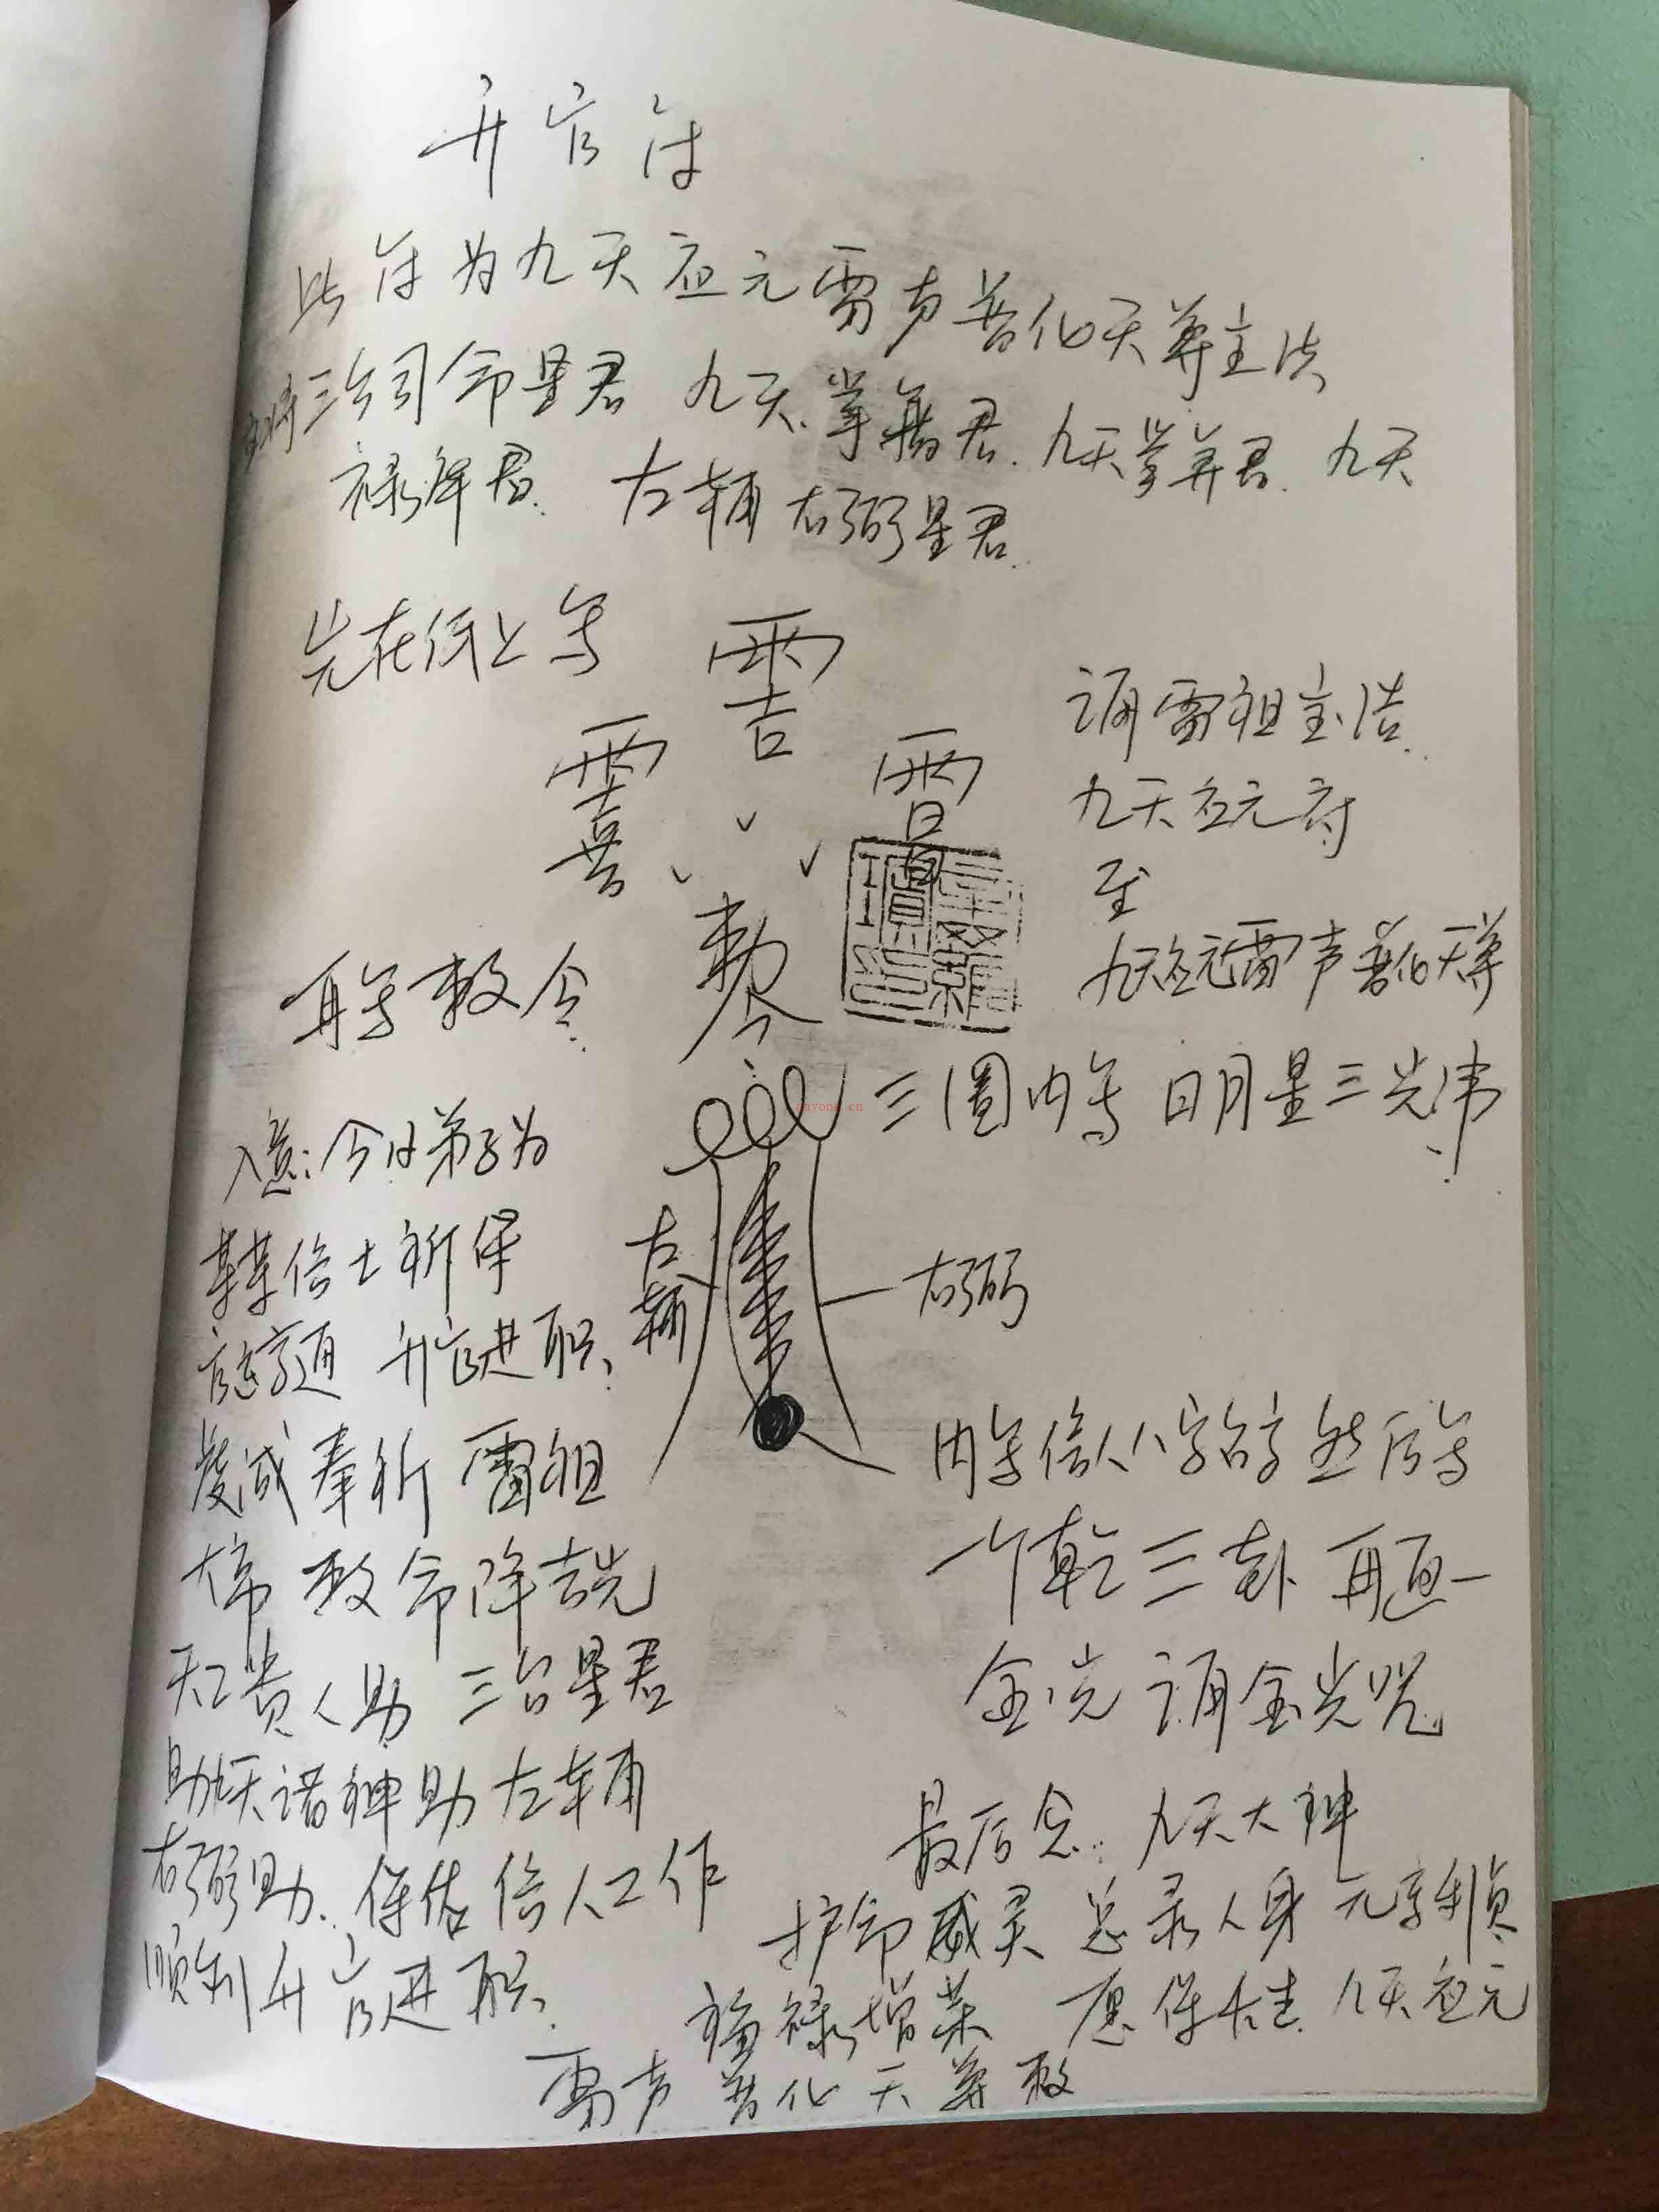 升官符
此符为九天应元雷声普化天尊主法
三台司命星君 九天掌籍君、九天掌算君、九天
禄库君、左辅右弼星君.
先在纸上写
再写敕令.
敕令
诵雷祖宝诰.
九天应元府
至
九天应元雷声普化天尊
三圈内写 日月星三光讳
入意:今日弟子为
某某信士祈保
官运亨通 升官进职、
虔诚奉祈 雷祖
大帝 敕命降吉光
天工贵人助 三台星君
助九天诸神助左辅
右弼助.保佑信人工作
顺利升官进职.
左辅
右弼
内写信人八字名字 然后写
一个乾三卦 再画一
金光 诵金光咒
最后念:九天大神
护命威灵 总录人身 元亨利贞
福禄增荣 愿保长生 九天应元
雷声普化天尊敕